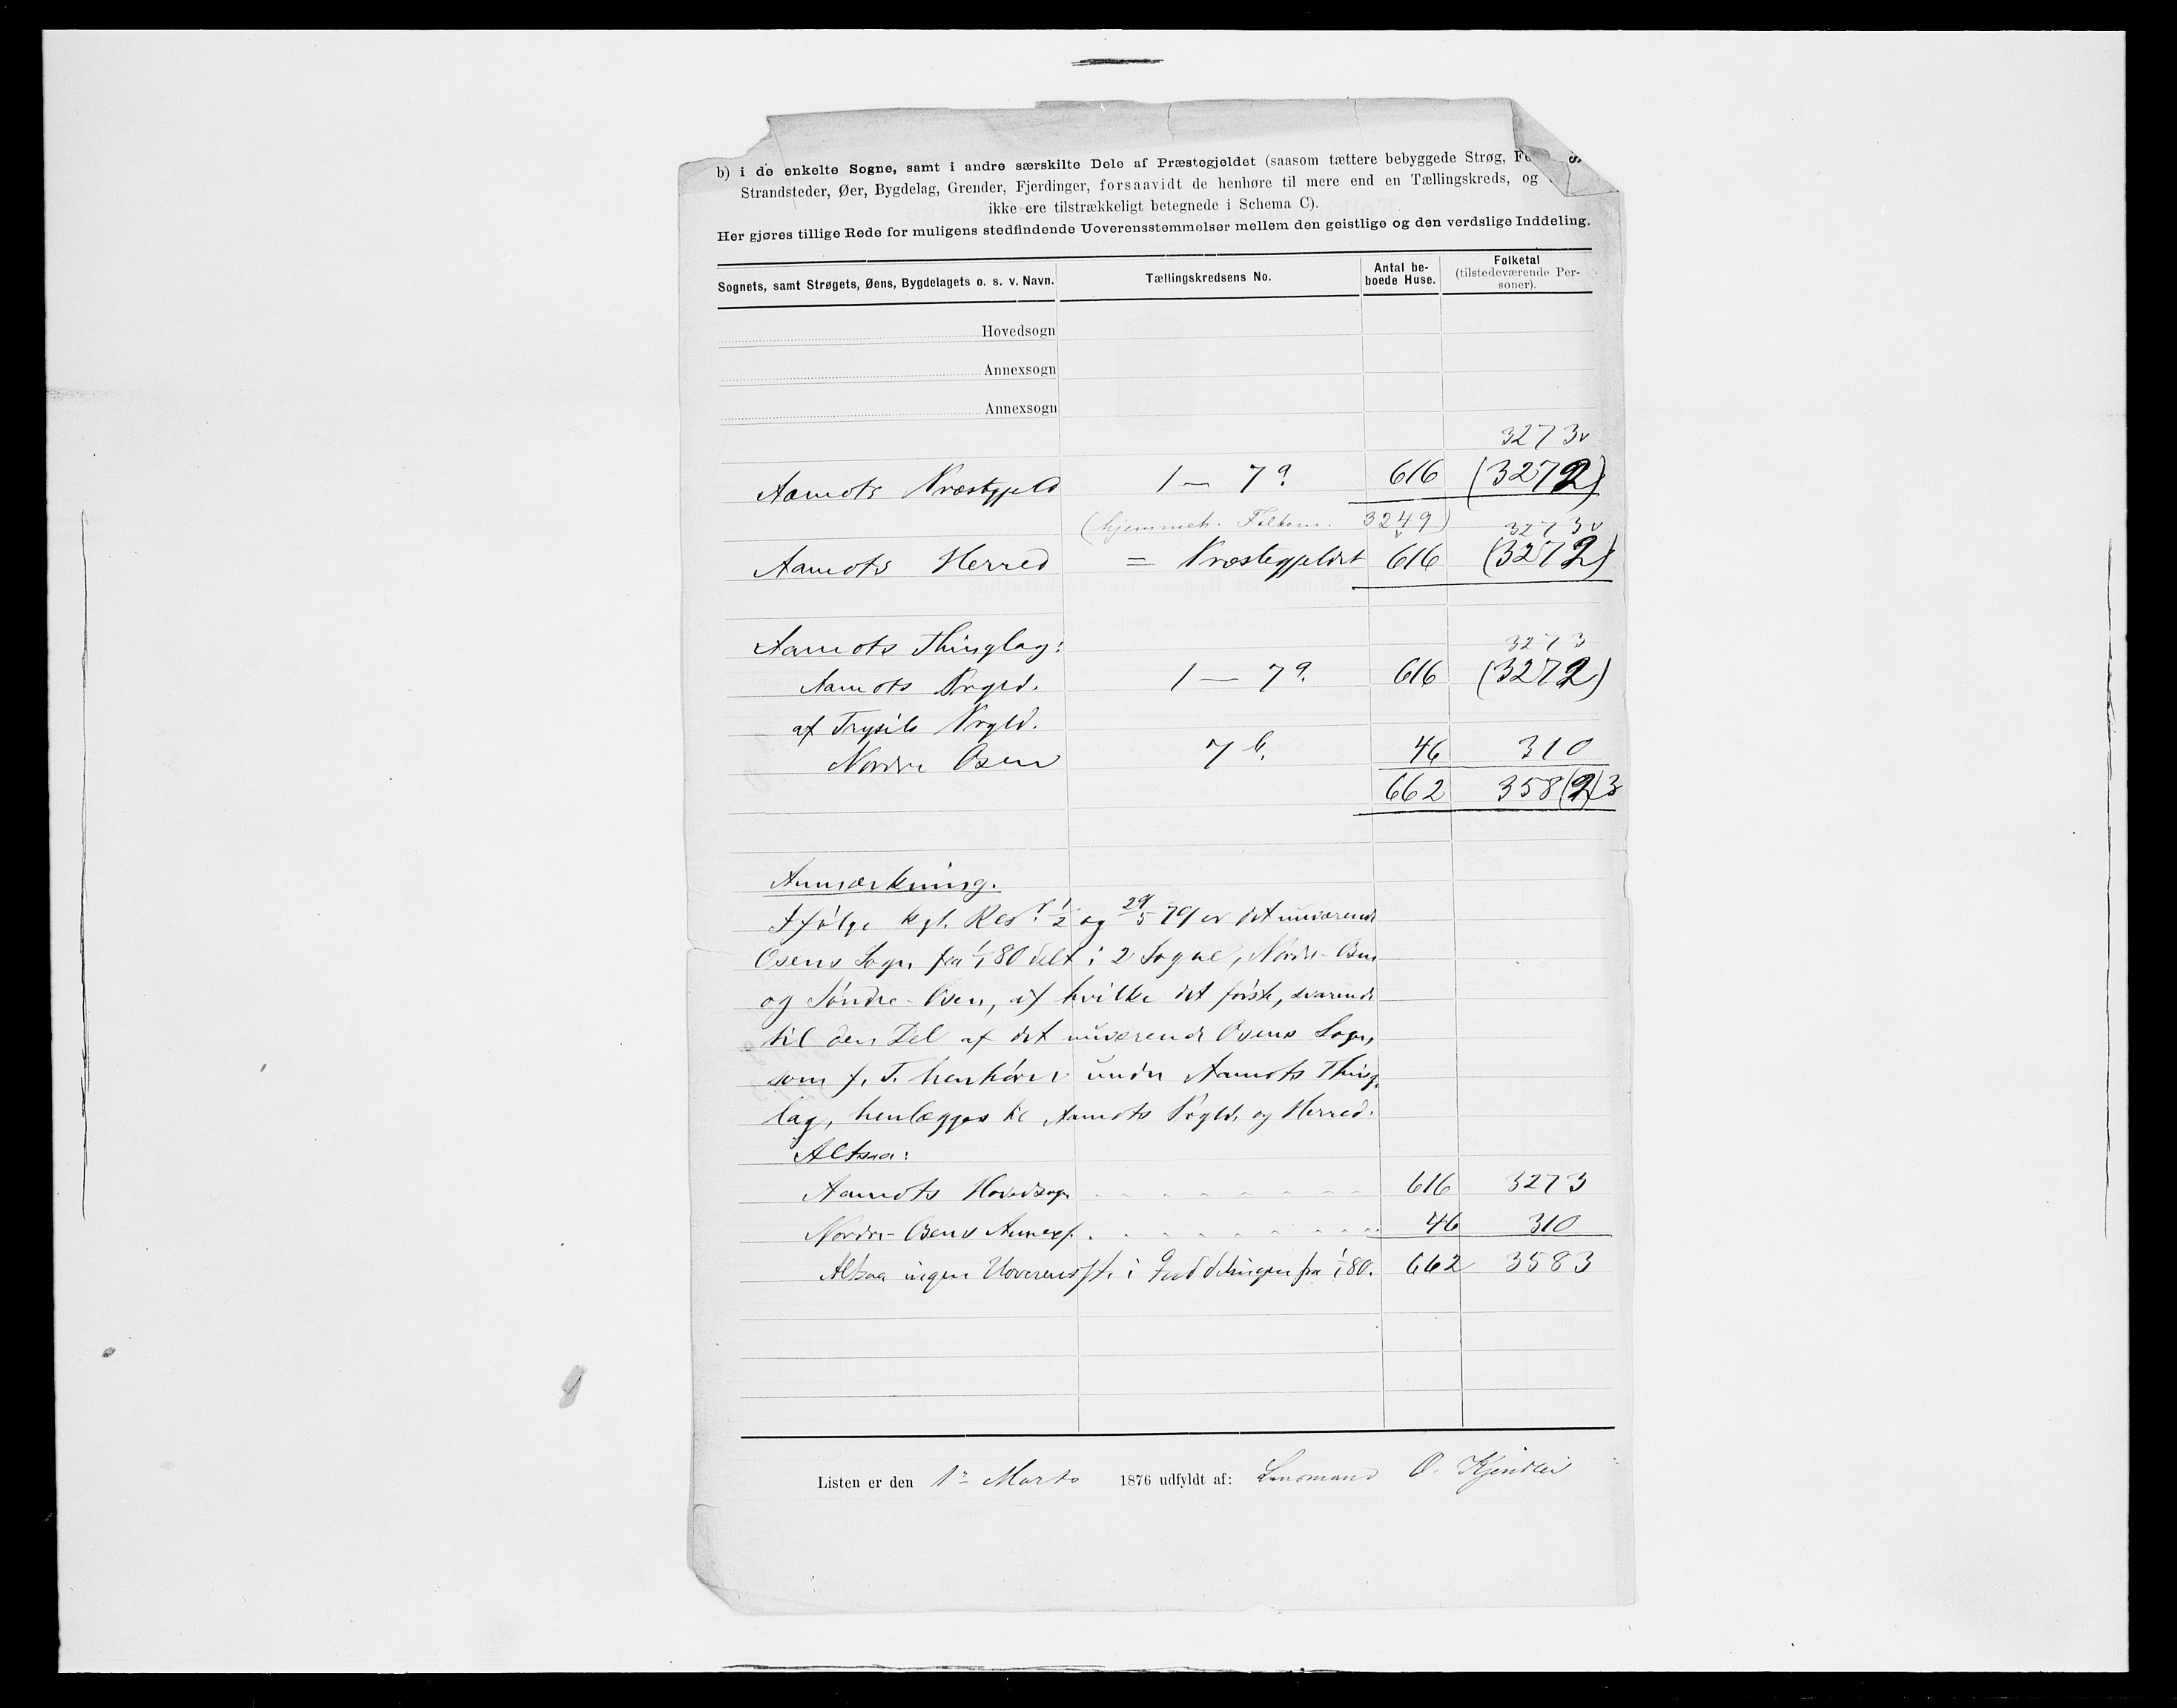 b) i de enkelte Sogne, samt i andre særskilte Dele af Præstegjeldet (saasom tættere bebyggede Strøg,
Strandsteder, Øer, Bygdelag, Grender, Fjerdinger, forsaavidt de henhøre til mere end en Tællingskreds, og
ikke ere tilstrækkeligt betegnede i Schema C).
Her gjøres tillige Rede for muligens stedfindende Uoverensstemmelser mellem den geistlige og den verdslige Inddeling.
Sognets, samt Strøgets, Øens, Bygdelagets o. s. v. Navn. Tællingskredsens No. Antal beboede Huse. Folketal (tilstedeværende Personer).
Hovedsogn
Annexsogn
Annexsogn
3273
Aamots Præstegjeld 1 — 7a. 616 (3272)
(hjemmeh. Folkem. 3249) 3273
Aamots Herred = Præstegjeldet 616 (3272)
Aamots Thinglag: 3273
Aamots Prgld. 1 — 7a. 616 (3272)
af Trysils Prgld.
Nordre Osen 7 b. 46 310
662 358(2)3
Anmærkning.
Ifølge kgl. Res. 1/2 og 29/5 79 er det nuværende
Osens Sogn fra 1/1 80 delt i 2 Sogne, Nordre-Osen
og Søndre-Osen, af hvilke det første, svarende
til den Del af det nuværende Osens Sogn,
som f. T. henhører under Aamots Thing-
lag, henlægges til Aamots Prgld. og Herred.
Altsaa:
Aamots Hovedsogn 616 3273
Nordre-Osens Annexs. 46 310
Altsaa ingen Uoverensst. i Inddelingen fra 1/1 80. 662 3583
Listen er den 1ste Marts 1876 udfyldt af: Lensmand O. Kjendlei